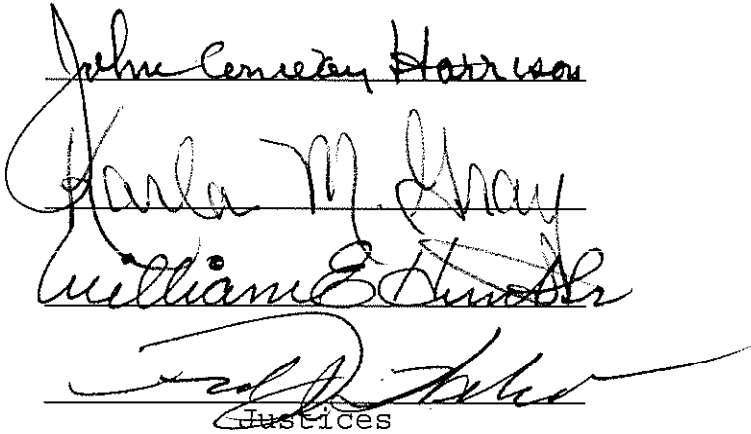 John Conway Harrison
Karla M. Gray
William E Hunt Sr
Justices